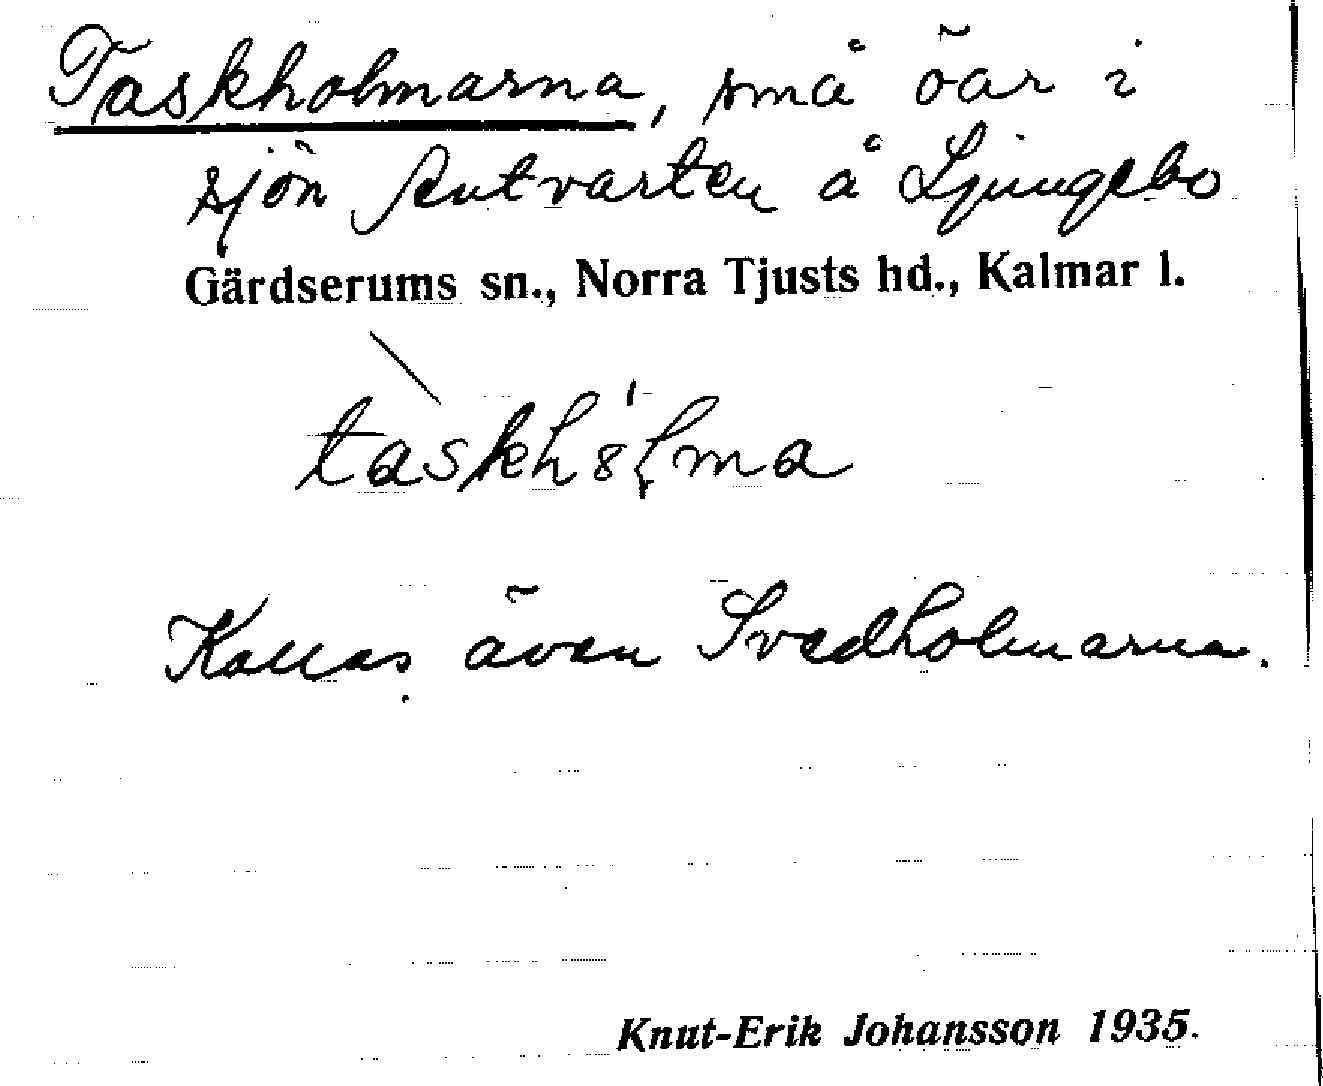 Taskholmarna, små öar i
sjön Rutvarten å Ljungsbo
Gärdserums sn., Norra Tjusts hd., Kalmar l.
Kallas även Svedholmarna.
Knut-Erik Johansson 1935.